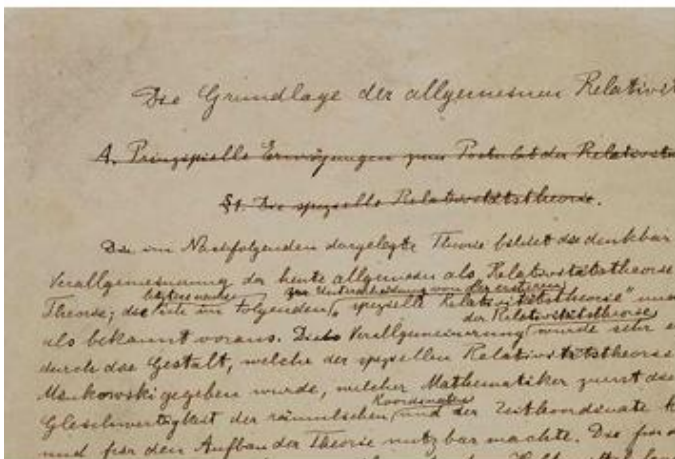 Die Grundlage der allgemeinen Relativit
A. Prinzipielle Erwägungen zum Postulat der Relativität
§1. Die spezielle Relativitätstheorie.
Die im Nachfolgenden dargelegte Theorie bildet die denkbar
Verallgemeinerung der heute allgemein als „Relativitätstheorie
letztere nenne zur Unterscheidung von der ersteren
Theorie; die ich im Folgenden „spezielle Relativitätstheorie" und
der Relativitätstheorie
als bekannt voraus. Die Verallgemeinerung wurde sehr e
durch die Gestalt, welche der speziellen Relativitätstheorie
Minkowski gegeben wurde, welcher Mathematiker zuerst die
Koordinaten
Gleichwertigkeit der räumlichen und der Zeitkoordinate k
und für den Aufbau der Theorie nutzbar machte. Die für d